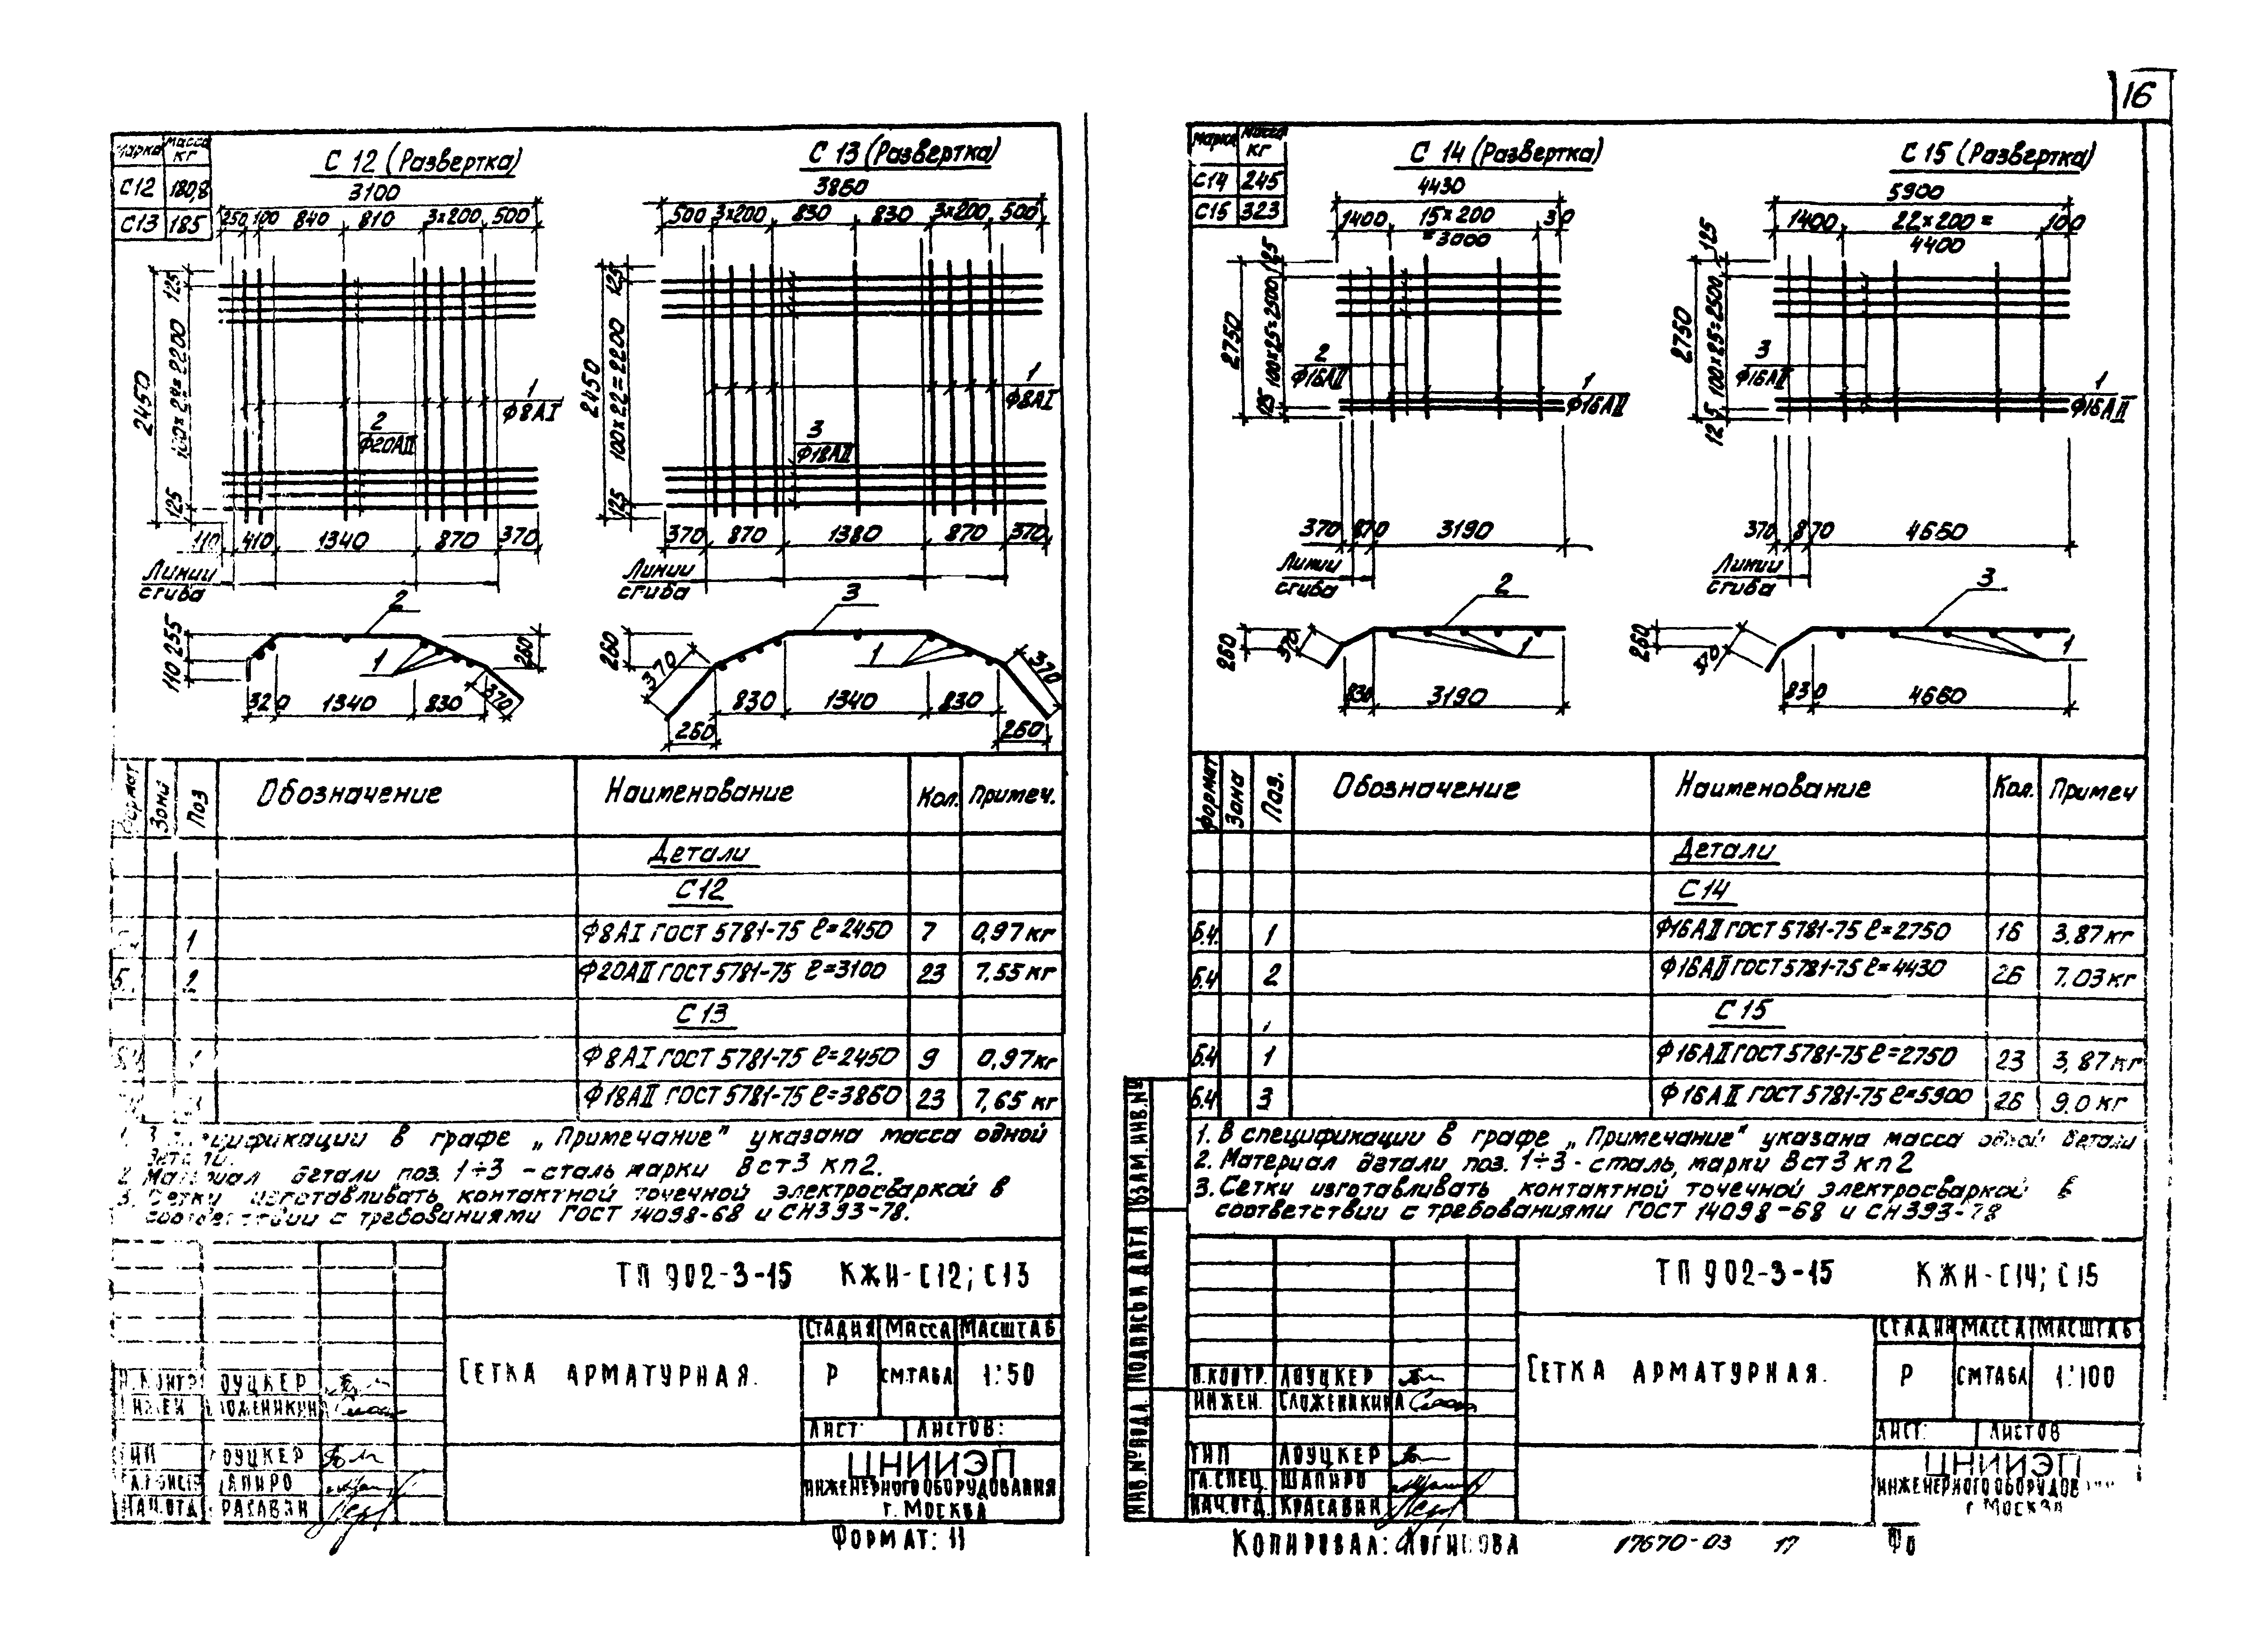 16
Марка Масса кг
С12 180,8
С13 185
С 12 (Развертка)
3100
250 100 840 810 3x200 500
2450
125
100x22=2200
125
1
Ф8АI
2
Ф20АII
110 410 1340 870 370
Линии сгиба
2
255
110
1
260
370
320 1340 830
С 13 (Развертка)
3860
500 3x200 830 830 3x200 500
2450
125
100x22=2200
125
1
Ф8АI
3
Ф18АII
370 870 1380 870 370
Линии сгиба
3
260
370
1
370
830 1340 830
260 260
Формат Зона Поз Обозначение Наименование Кол. Примеч.
Детали
С12
1 Ф8АI ГОСТ 5781-75 ℓ=2450 7 0,97кг
Б. 2 Ф20АII ГОСТ 5781-75 ℓ=3100 23 7.55кг
С13
Ф8АI ГОСТ 5781-75 ℓ=2450 9 0,97кг
Ф18АII ГОСТ 5781-75 ℓ=3860 23 7,65 кг
1. В спецификации в графе „Примечание" указана масса одной
детали.
2 Материал детали поз. 1÷3 - сталь марки Вст3 кп2.
3. Сетки изготавливать контактной точечной электросваркой в
соответствии с требованиями ГОСТ 14098-68 и СН393-78.
ТП 902-3-15 КЖИ-С12; С13
Сетка арматурная.
Стадия Масса Масштаб
Р см.табл 1:50
Лист Листов:
Н.контр Лоуцкер
Инжен Сложеникина
ГИП Лоуцкер
Гл.констр Шапиро
Нач.отд Красавин
ЦНИИЭП
инженерного оборудования
г. Москва
Формат: 11
Марка Масса кг
С14 245
С15 323
С 14 (Развертка)
4430
1400 15x200 =3000 30
2750
125
100x25=2500
125
2
Ф16АII
1
Ф16АII
370 870 3190
Линии сгиба
2
260
370
1
830 3190
С 15 (Развертка)
5900
1400 22x200= 4400 100
2750
125
100x25=2500
125
3
Ф16АII
1
Ф16АII
370 870 4660
Линии сгиба
3
260
370
1
830 4660
Формат Зона Поз. Обозначение Наименование Кол. Примеч
Детали
С14
Б.4. 1 Ф16АII ГОСТ 5781-75 ℓ=2750 16 3,87кг
Б.4 2 Ф16АII ГОСТ 5781-75 ℓ=4430 26 7,03кг
С15
Б.4 1 Ф16АII ГОСТ 5781-75 ℓ=2750 23 3,87кг
Б.4 3 Ф16АII ГОСТ 5781-75 ℓ=5900 26 9,0 кг
1. В спецификации в графе „Примечание" указана масса одной детали
2. Материал детали поз. 1÷3 - сталь, марки Вст3кп2
3. Сетки изготавливать контактной точечной электросваркой в
соответствии с требованиями ГОСТ 14098-68 и СН393-78
Инв.№ подл. Подпись и дата Взам.инв.№
ТП 902-3-15 КЖИ-С14; С15
Сетка арматурная.
Стадия Масса Масштаб
Р см табл 1:100
Лист: Листов
Н.контр. Лоуцкер
Инжен. Сложеникина
ГИП Лоуцкер
Гл.спец. Шапиро
Нач.отд. Красавин
ЦНИИЭП
инженерного оборудов
г. Москва
Копировал: Логинова 17670-03 17 Фо